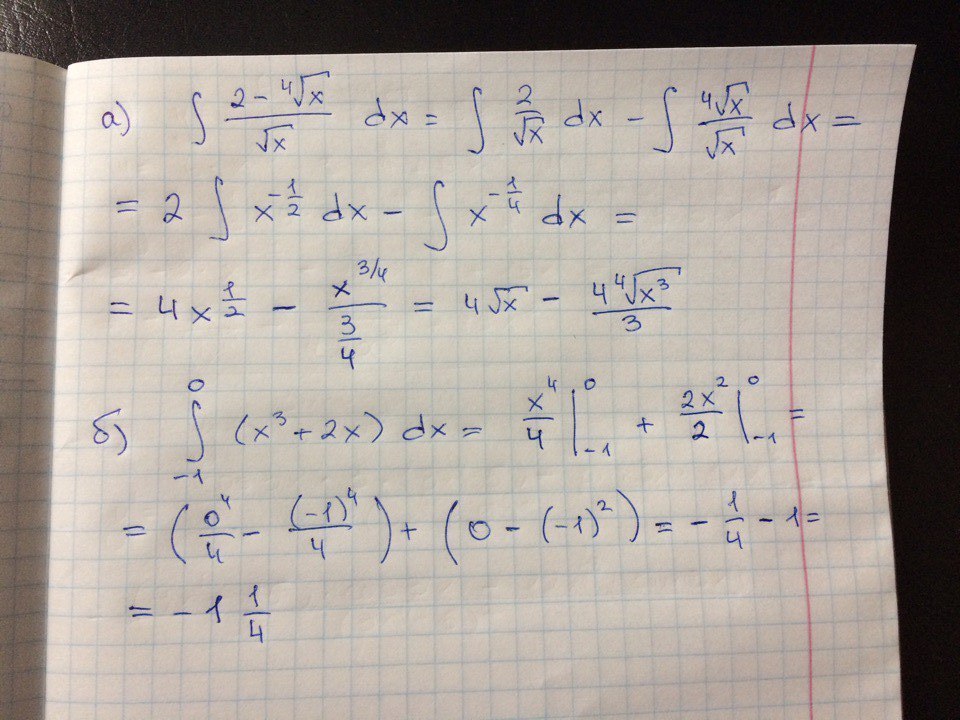 а) ∫ (2 - ⁴√x)/√x dx = ∫ 2/√x dx - ∫ ⁴√x/√x dx =
= 2 ∫ x^(-1/2) dx - ∫ x^(-1/4) dx =
= 4x^(1/2) - x^(3/4)/(3/4) = 4√x - 4⁴√(x³)/3
б) ∫_{-1}^{0} (x³ + 2x) dx = x⁴/4 |_{-1}^{0} + 2x²/2 |_{-1}^{0} =
= (0⁴/4 - (-1)⁴/4) + (0 - (-1)²) = - 1/4 - 1 =
= - 1 1/4